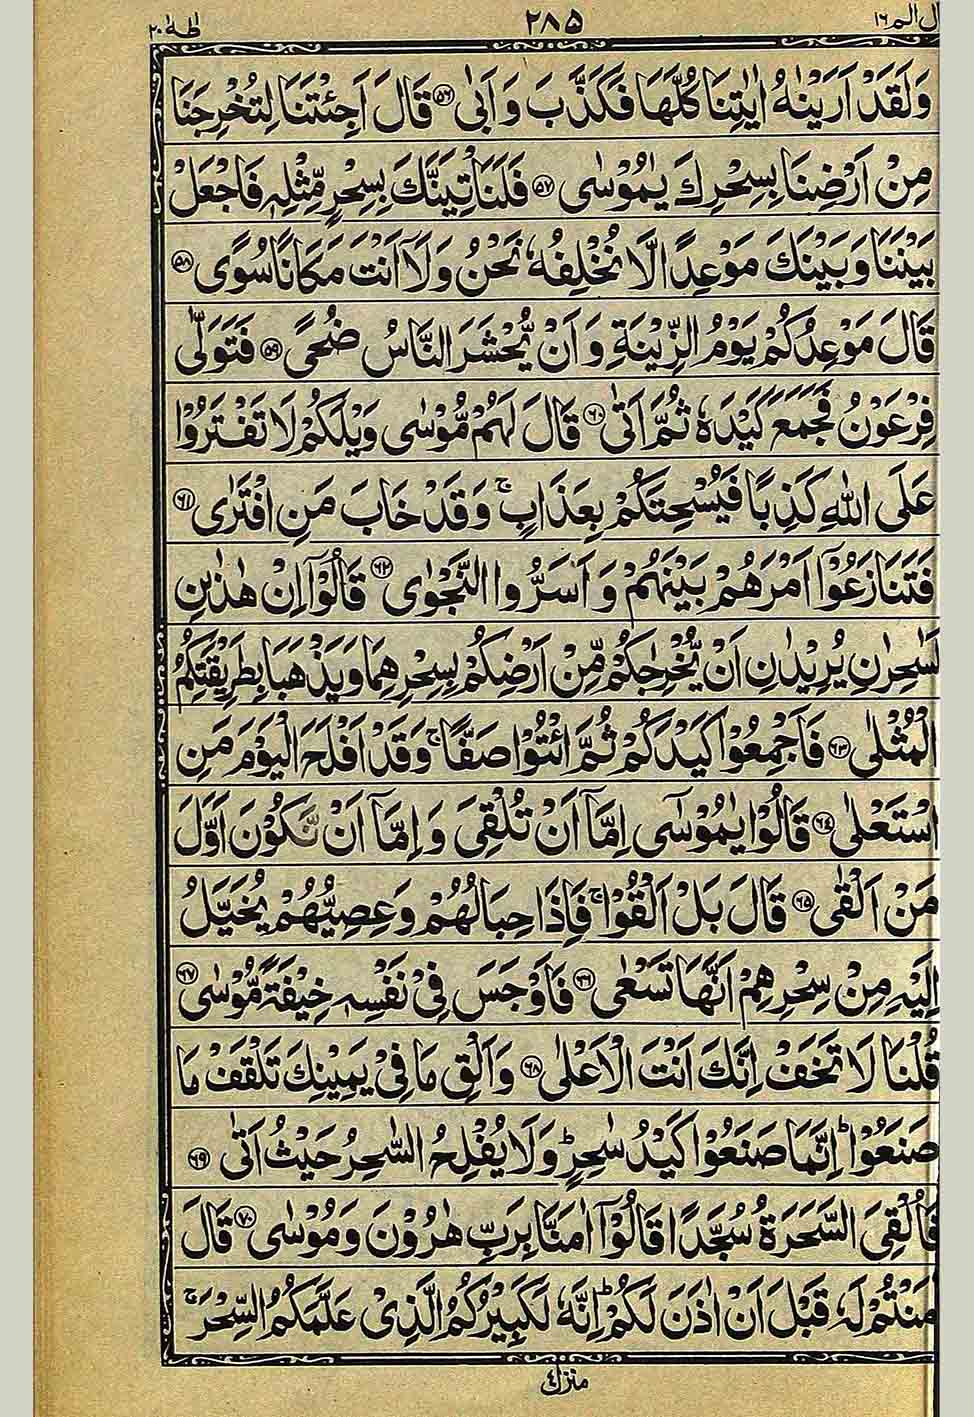 ال الم ١٦ ٢٨٥ طٰهٰ ٢٠
وَلَقَدْ اَرَيْنٰهُ اٰيٰتِنَا كُلَّهَا فَكَذَّبَ وَاَبٰى ۝٥٦ قَالَ اَجِئْتَنَا لِتُخْرِجَنَا
مِنْ اَرْضِنَا بِسِحْرِكَ يٰمُوْسٰى ۝٥٧ فَلَنَاْتِيَنَّكَ بِسِحْرٍ مِّثْلِهٖ فَاجْعَلْ
بَيْنَنَا وَبَيْنَكَ مَوْعِدًا لَّا نُخْلِفُهٗ نَحْنُ وَلَاۤ اَنْتَ مَكَانًا سُوًى ۝٥٨
قَالَ مَوْعِدُكُمْ يَوْمُ الزِّيْنَةِ وَاَنْ يُّحْشَرَ النَّاسُ ضُحًى ۝٥٩ فَتَوَلّٰى
فِرْعَوْنُ فَجَمَعَ كَيْدَهٗ ثُمَّ اَتٰى ۝٦٠ قَالَ لَهُمْ مُّوْسٰى وَيْلَكُمْ لَا تَفْتَرُوْا
عَلَى اللّٰهِ كَذِبًا فَيُسْحِتَكُمْ بِعَذَابٍ ۚ وَقَدْ خَابَ مَنِ افْتَرٰى ۝٦١
فَتَنَازَعُوْۤا اَمْرَهُمْ بَيْنَهُمْ وَاَسَرُّوا النَّجْوٰى ۝٦٢ قَالُوْۤا اِنْ هٰذٰىنِ
لَسٰحِرٰنِ يُرِيْدٰنِ اَنْ يُّخْرِجٰكُمْ مِّنْ اَرْضِكُمْ بِسِحْرِهِمَا وَيَذْهَبَا بِطَرِيْقَتِكُمُ
الْمُثْلٰى ۝٦٣ فَاَجْمِعُوْا كَيْدَكُمْ ثُمَّ ائْتُوْا صَفًّا ۚ وَقَدْ اَفْلَحَ الْيَوْمَ مَنِ
اسْتَعْلٰى ۝٦٤ قَالُوْا يٰمُوْسٰۤى اِمَّاۤ اَنْ تُلْقِىَ وَاِمَّاۤ اَنْ نَّكُوْنَ اَوَّلَ
مَنْ اَلْقٰى ۝٦٥ قَالَ بَلْ اَلْقُوْا ۚ فَاِذَا حِبَالُهُمْ وَعِصِيُّهُمْ يُخَيَّلُ
اِلَيْهِ مِنْ سِحْرِهِمْ اَنَّهَا تَسْعٰى ۝٦٦ فَاَوْجَسَ فِىْ نَفْسِهٖ خِيْفَةً مُّوْسٰى ۝٦٧
قُلْنَا لَا تَخَفْ اِنَّكَ اَنْتَ الْاَعْلٰى ۝٦٨ وَاَلْقِ مَا فِىْ يَمِيْنِكَ تَلْقَفْ مَا
صَنَعُوْا ؕ اِنَّمَا صَنَعُوْا كَيْدُ سٰحِرٍ ؕ وَلَا يُفْلِحُ السّٰحِرُ حَيْثُ اَتٰى ۝٦٩
فَاُلْقِىَ السَّحَرَةُ سُجَّدًا قَالُوْۤا اٰمَنَّا بِرَبِّ هٰرُوْنَ وَمُوْسٰى ۝٧٠ قَالَ
اٰمَنْتُمْ لَهٗ قَبْلَ اَنْ اٰذَنَ لَكُمْ ؕ اِنَّهٗ لَكَبِيْرُكُمُ الَّذِىْ عَلَّمَكُمُ السِّحْرَ ۚ
منزل ٤